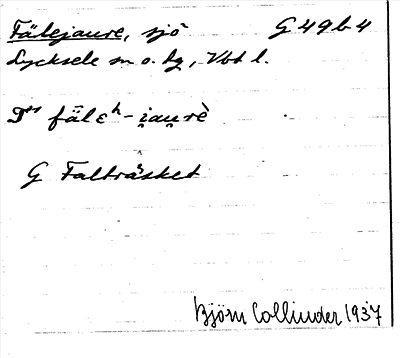 Fälejaure, sjö G 49 b 4
Lycksele sn o. hg, Vbt l.
fālεʰ-i̯au̯rè
G Falträsket
Björn Collinder 1937